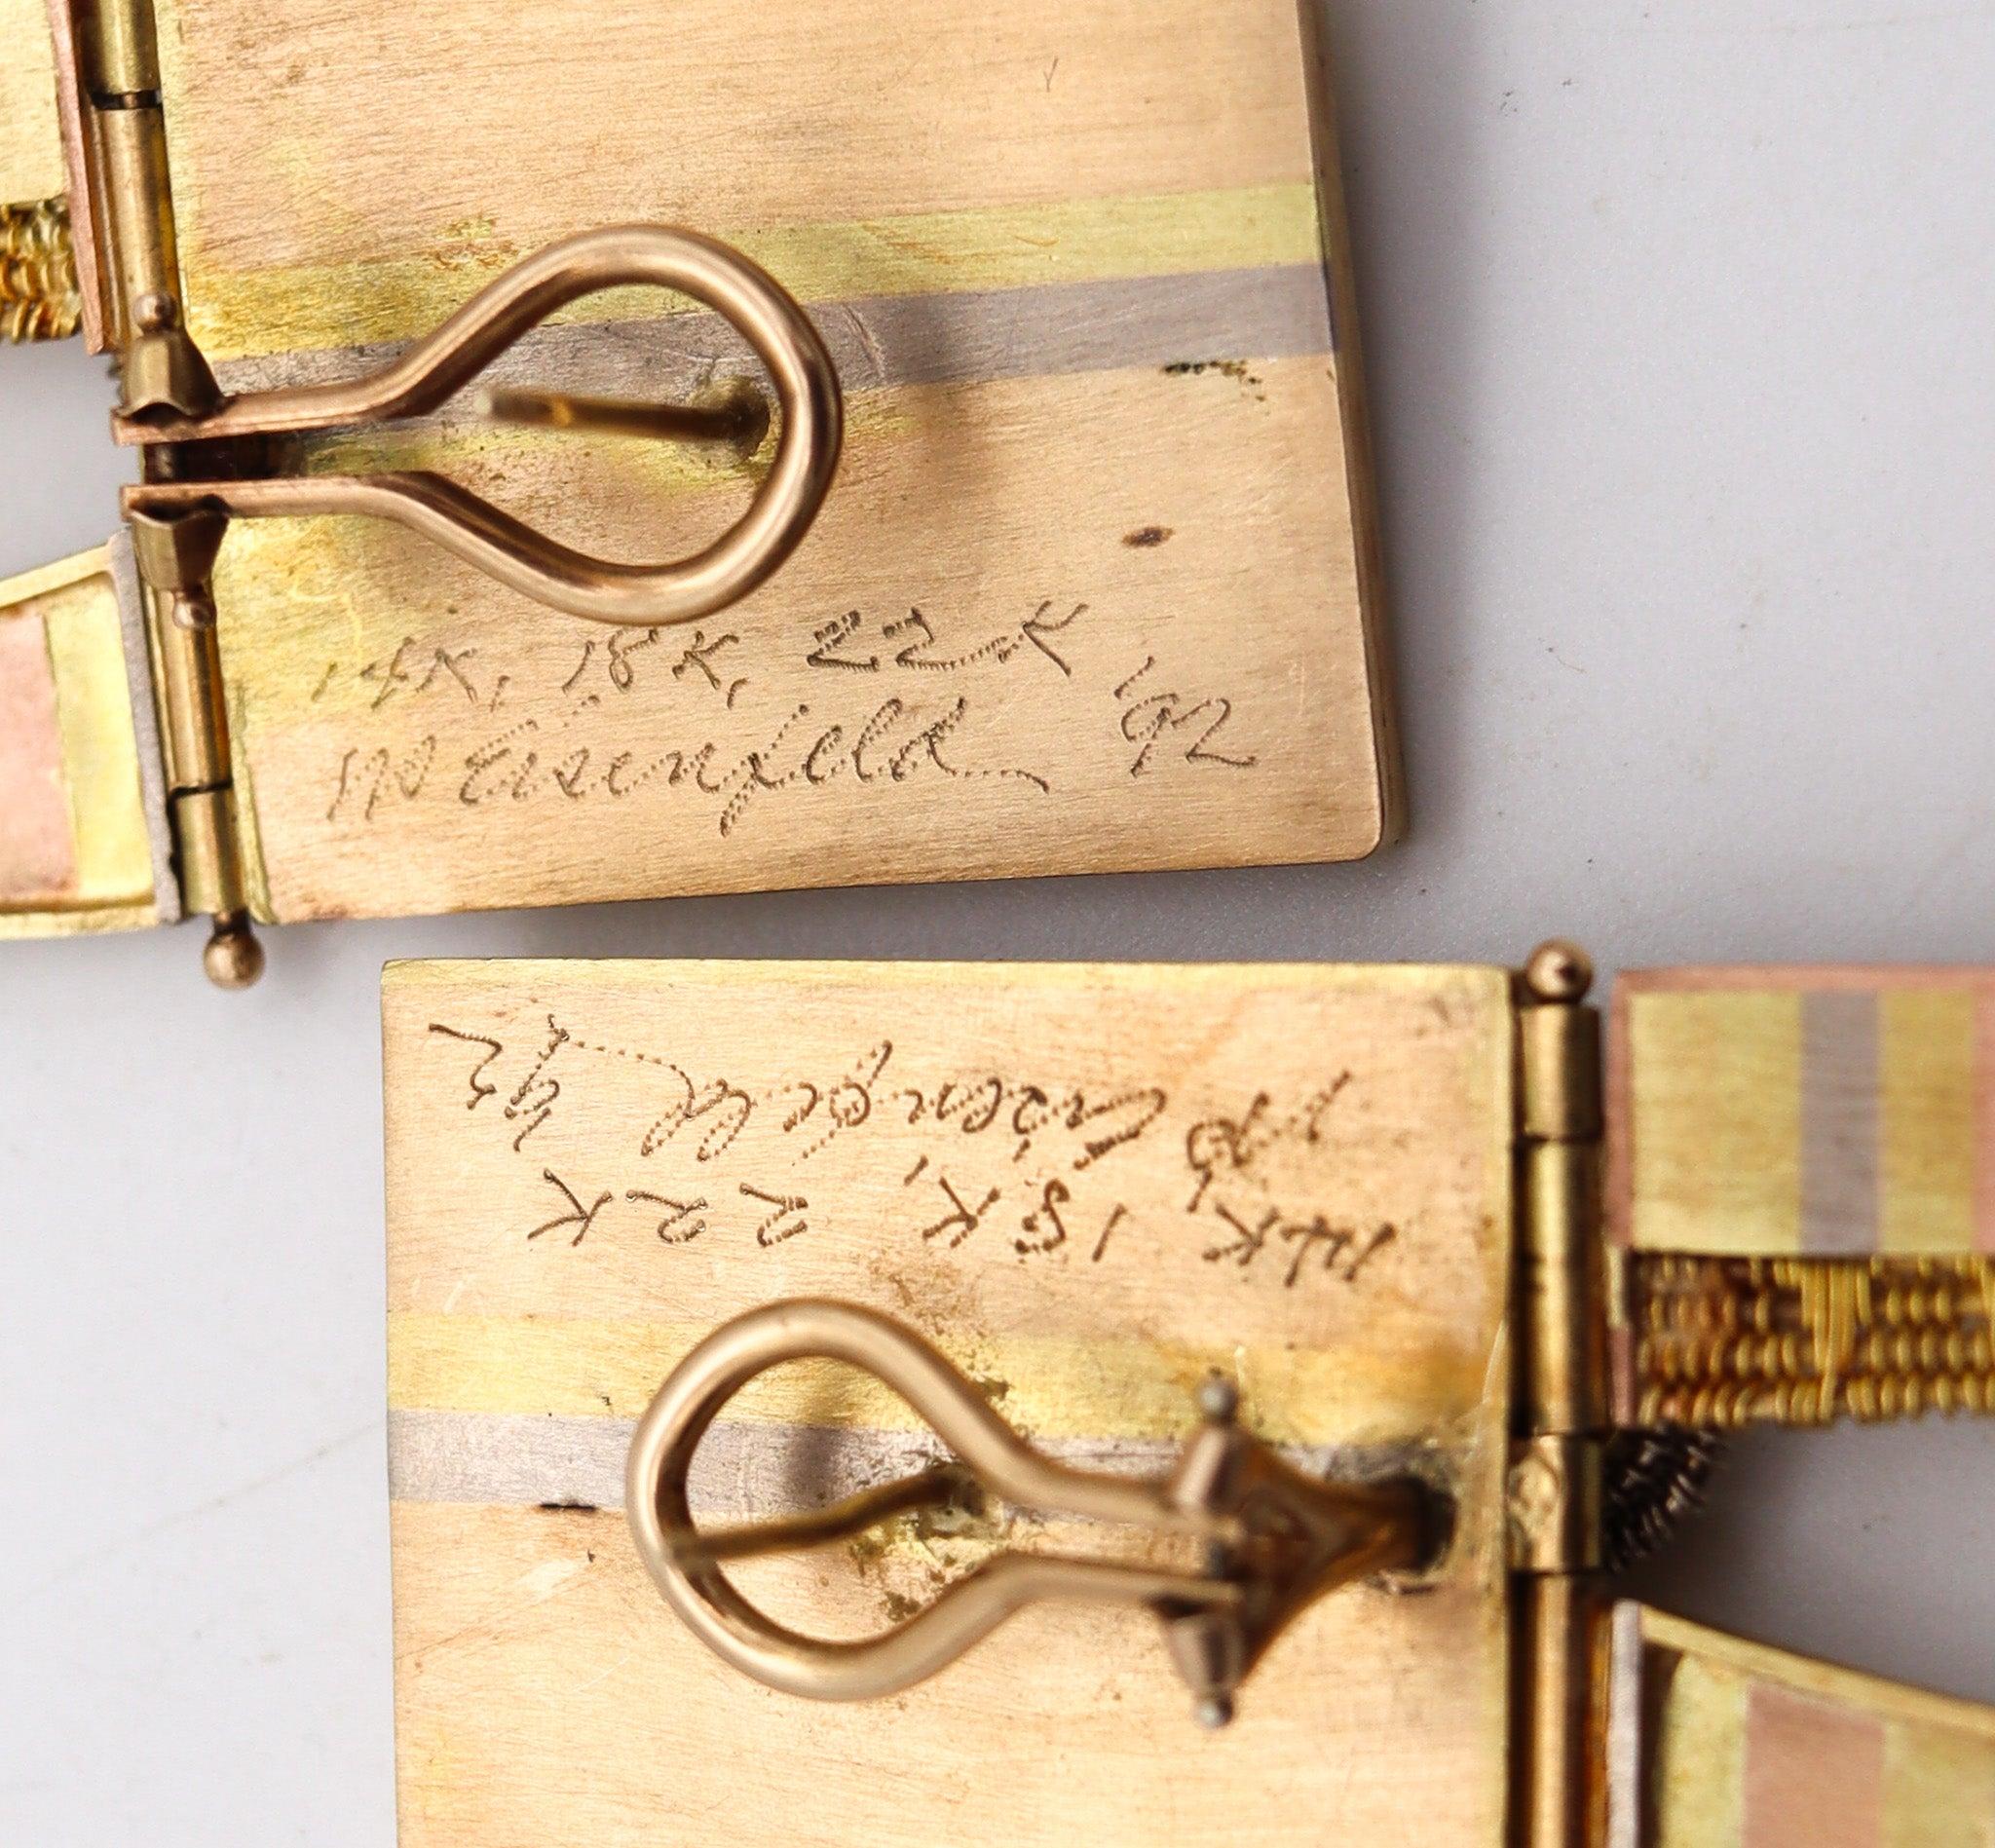 14K, 18K, 22K
Eisenfeld '92
14K 18K, 22K
Eisenfeld '92